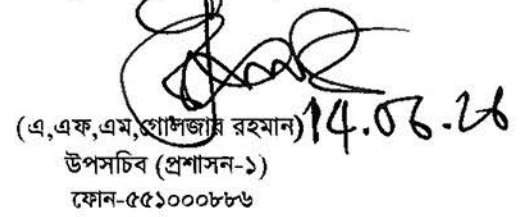 (এ,এফ,এম,গোলজার রহমান) 14.06.26
উপসচিব (প্রশাসন-১)
ফোন-৫৫১০০০৮৮৬